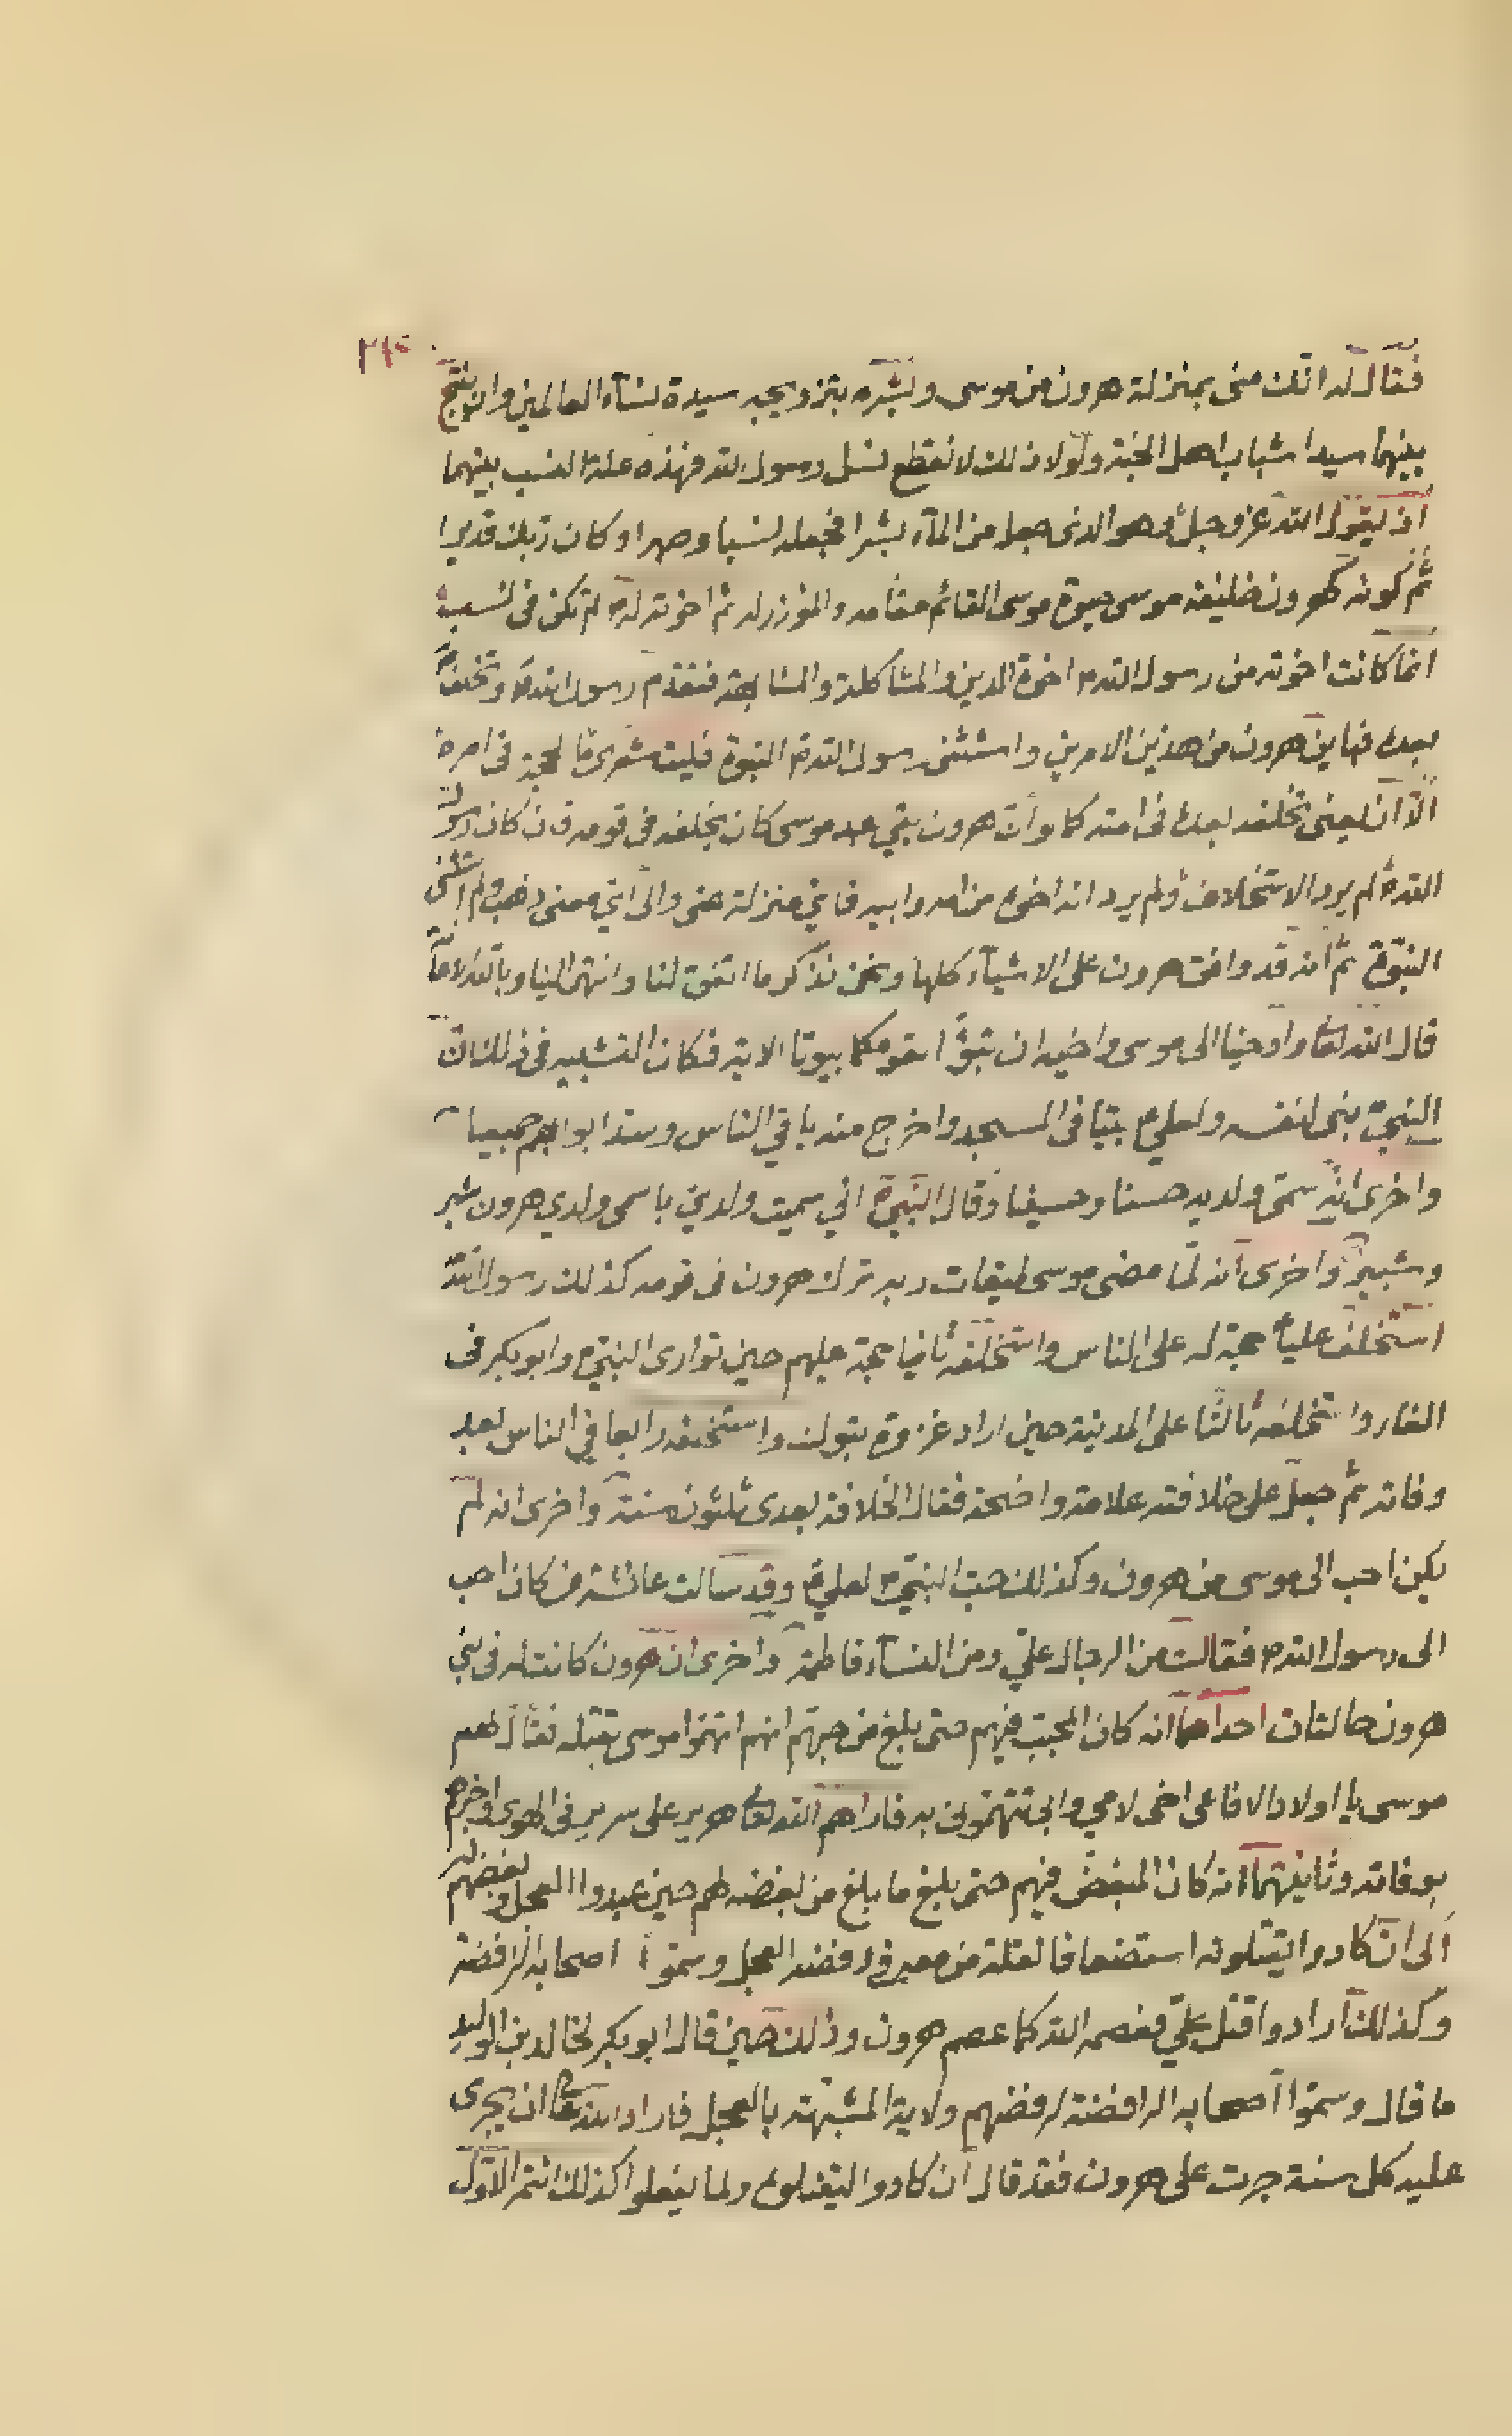 فقال له انك منى بمنزلة هرون من موسى وبشره بتزويجه سيدة نسآء العالمين وانه ينتج
بينهما سيدا شباب اهل الجنة ولولا ذلك لانقطع نسل رسول الله فهذه علة النسب بينهما
اذ يقول الله عز وجل وهو الذى جعل من المآء بشرا فجعله نسبا وصهرا وكان ربك قديرا
ثم كونه كهرون خليفة موسى حيوة موسى القائم مقامه والموزر له ثم اخوته له لم تكن فى نسب
انما كانت اخوته من رسول الله اخوة الدين والمشاكلة والمشابهة فتقدم رسول الله وتخلف
بعده فباين هرون من هذين الامرين واستثنى رسول الله النبوة فليت شعرى ما الحجة فى امره
الا ان يعنى تخلفه بعده فى امته كما وان هرون بقي بعد موسى كان يخلفه فى قومه فان كان رسول
الله لم يرد الاستخلاف ولم يرد انه اخوه من امه وابيه فاي منزلة عنى والى اي معنى ذهب ولم استثنى
النبوة ثم انه قد وافق هرون على الاشيآء كلها ونحن نذكر ما اتفق لنا وانتهى الينا وبالله
قال الله تعالى واوحينا الى موسى واخيه ان تبوّا لقومكما بيوتا الاية فكان التشبيه فى ذلك ان
النبى بنى لنفسه ولعلي بيتا فى المسجد واخرج منه باقي الناس وسد ابوابهم جميعا
واخرى انه سمى ولديه حسنا وحسينا وقال النبى اني سميت ولدي باسمى ولدي هرون شبر
وشبير واخرى انه لما مضى موسى لميقات ربه ترك هرون فى قومه كذلك رسول الله
استخلف عليا حجة له على الناس واستخلفه ثانيا حجة عليهم حين توارى النبى وابو بكر فى
الغار واستخلفه ثالثا على المدينة حين اراد غزوة تبوك واستخلفه رابعا في الناس بعد
وفاته ثم جعل على خلافته علامة واضحة فقال الخلافة بعدى ثلثون سنة واخرى انه لم
يكن احب الى موسى من هرون وكذلك حب النبى لعلي وقد سالت عائشة من كان احب
الى رسول الله فقالت من الرجال علي ومن النسآء فاطمة واخرى ان هرون كانت له فى بني
هرون حالتان احداهما انه كان المحبب فيهم حتى بلغ من حبهم انهم اتهموا موسى بقتله فقال لهم
موسى يا اولاد الافاعى اخى لامي وابى تتهمونى به فاراهم الله تعالى هرون على سرير فى الهوى واخبرهم
بوفاته وثانيتهما انه كان المبغض فيهم حتى بلغ ما بلغ من بغضه لهم حين عبدوا العجل وبغضهم له
الى ان كادوا يقتلونه استضعافا لقلة من معه في رفضه العجل وسموا اصحابه الرافضة
وكذلك ارادوا قتل علي فعصمه الله كما عصم هرون وذلك حين قال ابو بكر لخالد بن الوليد
ما قال وسموا اصحابه الرافضة لرفضهم ولاية المشبهة بالعجل فاراد الله تعالى ان يجرى
عليه كل سنة جرت على هرون فقد قال ان كادوا ليقتلوه ولما يفعلوا كذلك ائتمر الاول